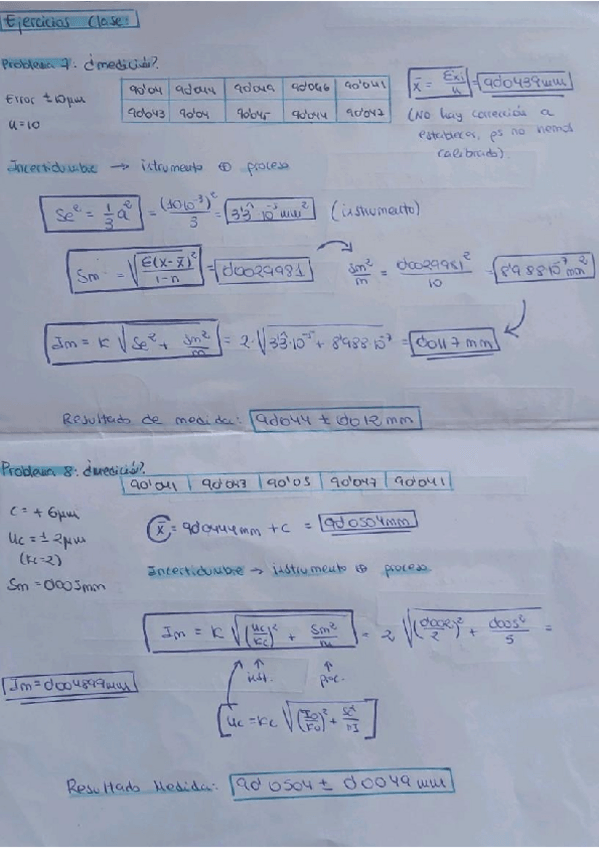 Ejercicios Clase:
Problema 7: ¿medición?.
Error ±10µm
n=10
90'04 | 90'044 | 90'049 | 90'046 | 90'041
90'043 | 90'04 | 90'045 | 90'044 | 90'042
x̄ = Σxi/n = 90'0439mm
(No hay corrección a establecer, ps no hemos calibrado).
Incertidumbre → istrumento ⊕ proceso
Se² = 1/3 a² = (10·10⁻³)²/3 = 3'3̂·10⁻⁵ mm² (instrumento)
Sm = √(Σ(x-x̄)²/(1-n)) = 0'0029981
Sm²/m = 0'0029981²/10 = 8'988·10⁻⁷ mm²
Im = K √(Se² + Sm²/m) = 2·√(3'3̂·10⁻⁵ + 8'988·10⁻⁷) = 0'0117 mm
Resultado de medida: 90'044 ± 0'012 mm
Problema 8: ¿medición?.
90'041 | 90'043 | 90'05 | 90'047 | 90'041
C = + 6µm
Uc = ± 2µm
(Kc=2)
Sm = 0'003mm
x̄ = 90'0444mm + C = 90'0504mm
Incertidumbre → instrumento ⊕ proceso.
Im = K √((Uc/Kc)² + Sm²/m) = 2 √((0'002/2)² + 0'005²/5) =
Im = 0'004899mm
inst. proc.
[Uc = Kc √((I0/K0)² + Sc²/nI)]
Resultado Medida: 90'0504 ± 0'0049 mm